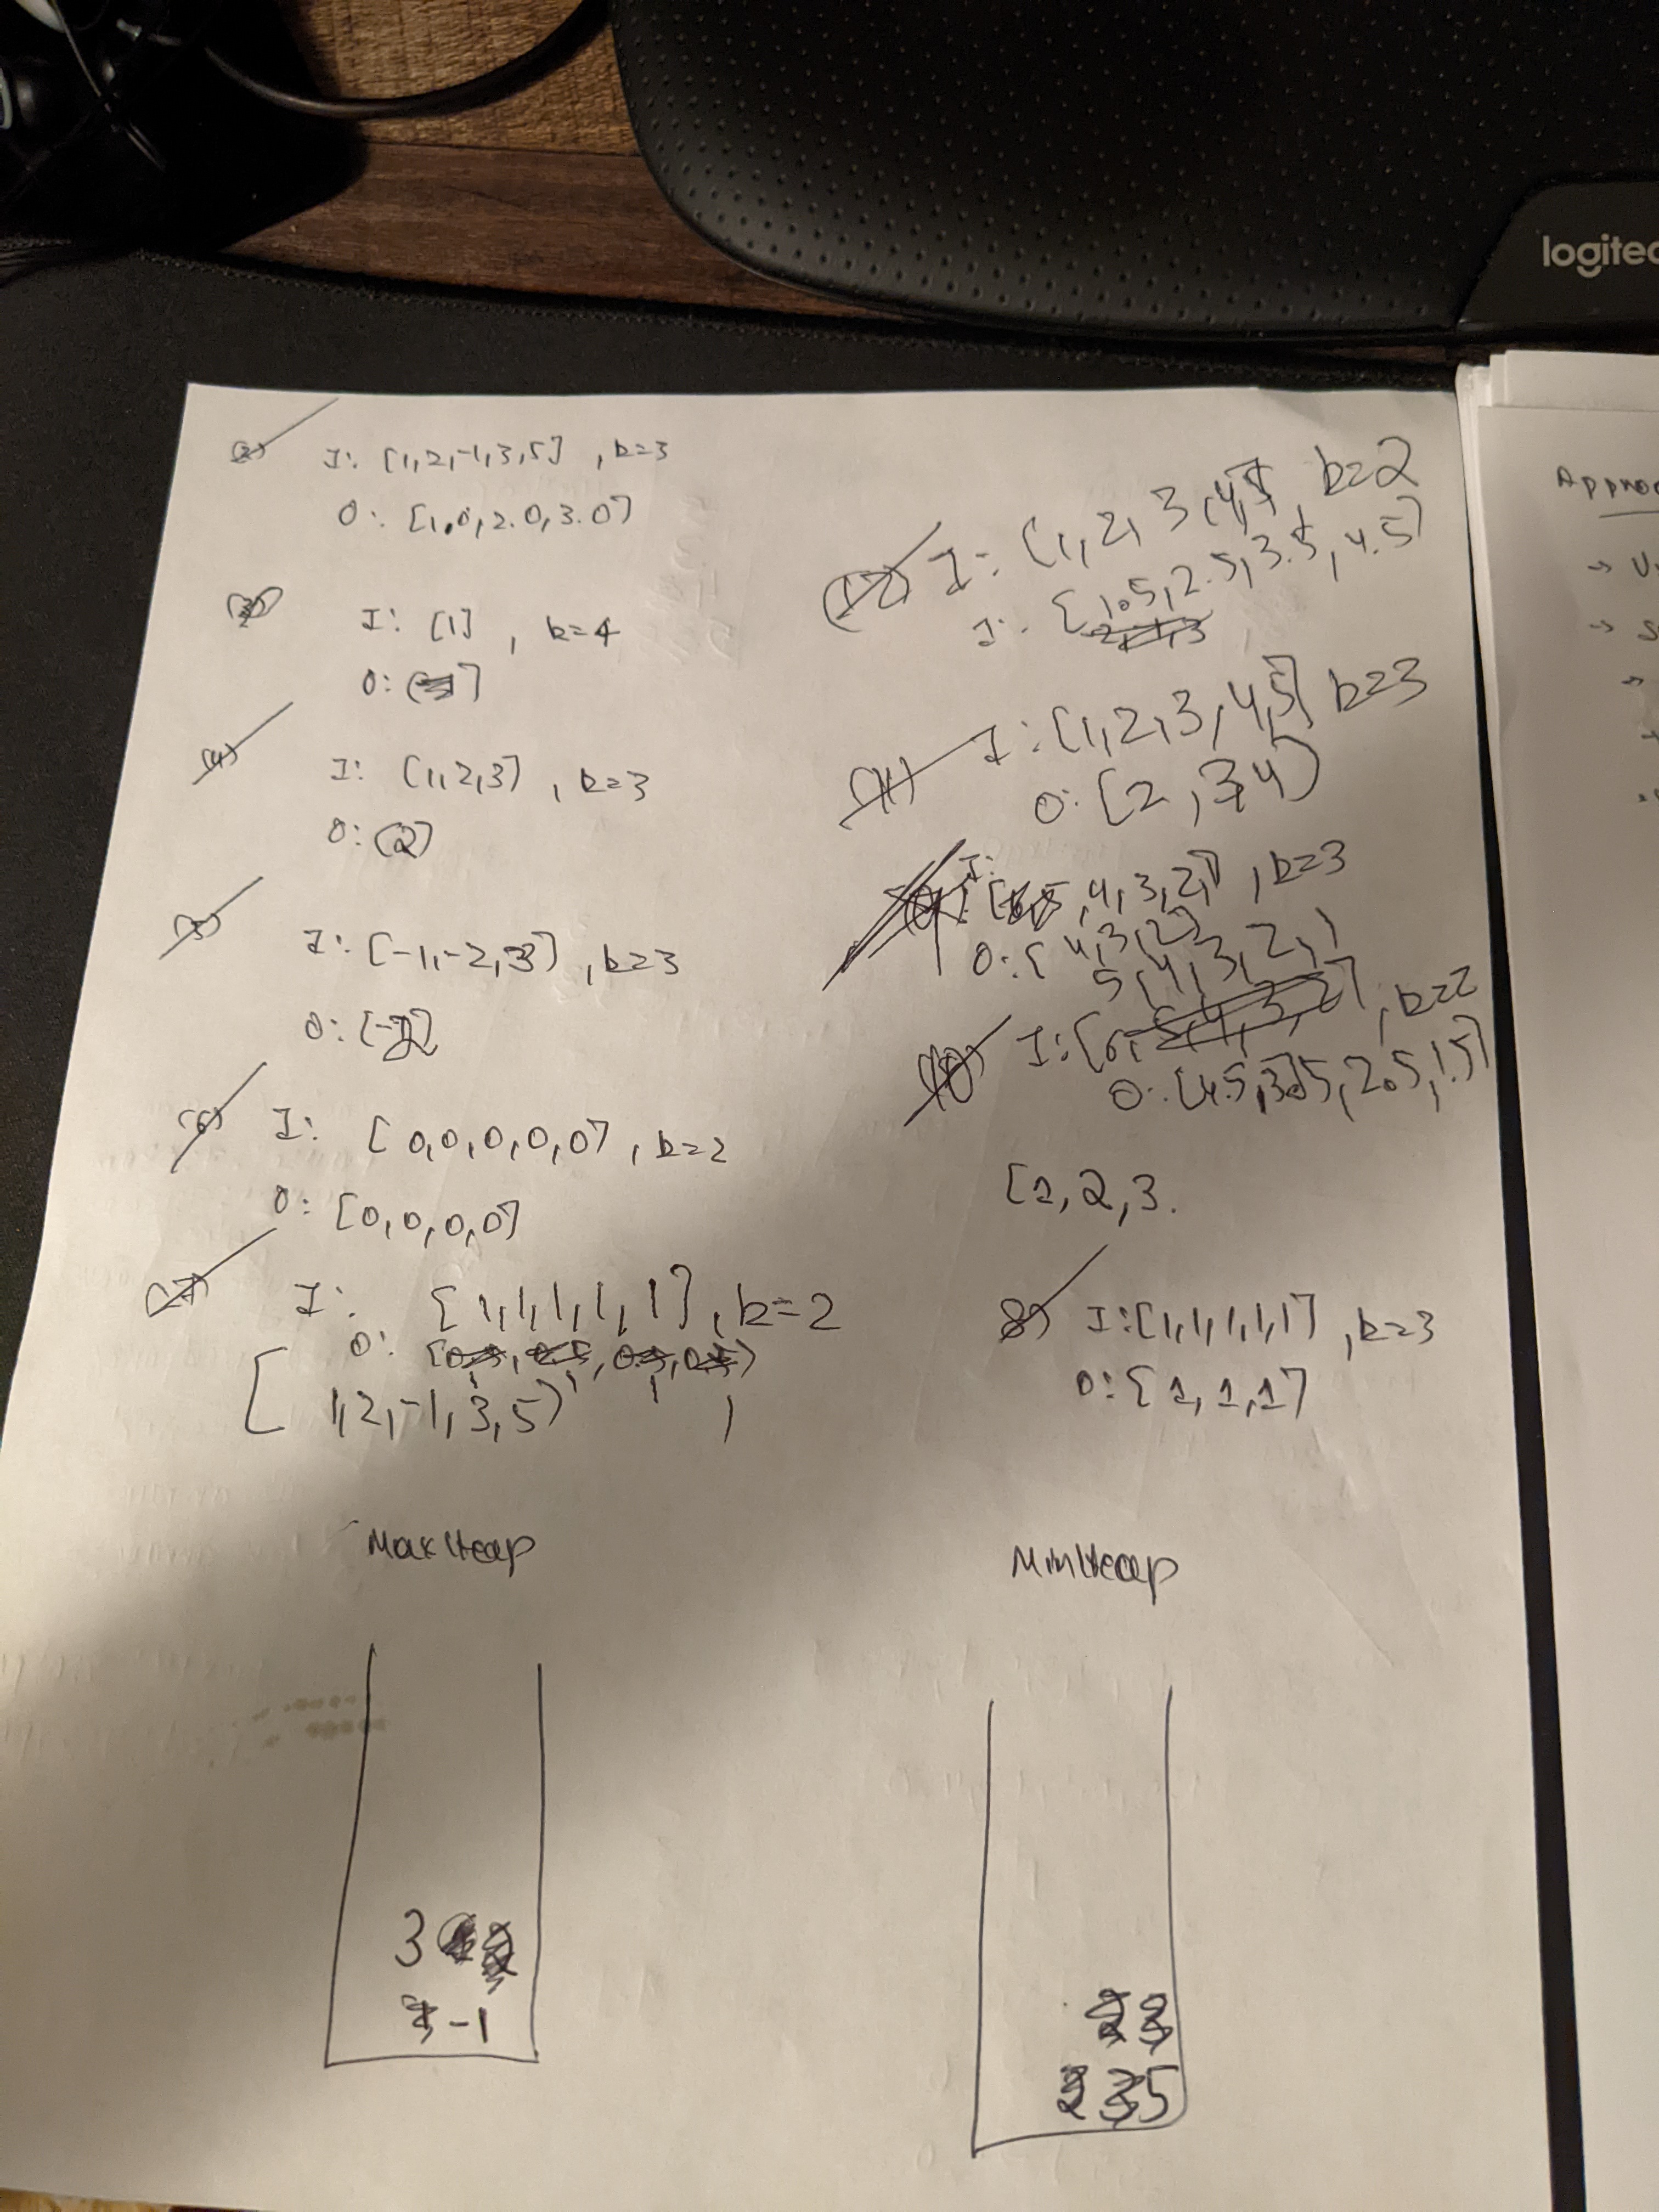 logitec
(2) I: [1,2,-1,3,5] , k=3
O: [1.0,2.0,3.0]
(3) I: [1] , k=4
O: [ ]
(4) I: [1,2,3] , k=3
O: [2]
(5) I: [-1,-2,3] , k=3
O: [-1]
(6) I: [0,0,0,0,0] , k=2
O: [0,0,0,0]
(7) I: [1,1,1,1,1] , k=2
O: [1, 1, 1, 1]
[1,2,-1,3,5]
(12) I: [1,2,3,4,5] k=2
I: [1.5,2.5,3.5,4.5]
(11) I: [1,2,3,4,5] k=3
O: [2,3,4]
(9) I: [5,4,3,2,1] , k=3
O: [4,3,2]
5,4,3,2,1
(10) I: [ ] , k=2
O: [4.5,3.5,2.5,1.5]
[1,2,3.
8) I: [1,1,1,1,1] , k=3
O: [1,1,1]
MaxHeap
MinHeap
3
-1
5
Approa
→
→ S
→